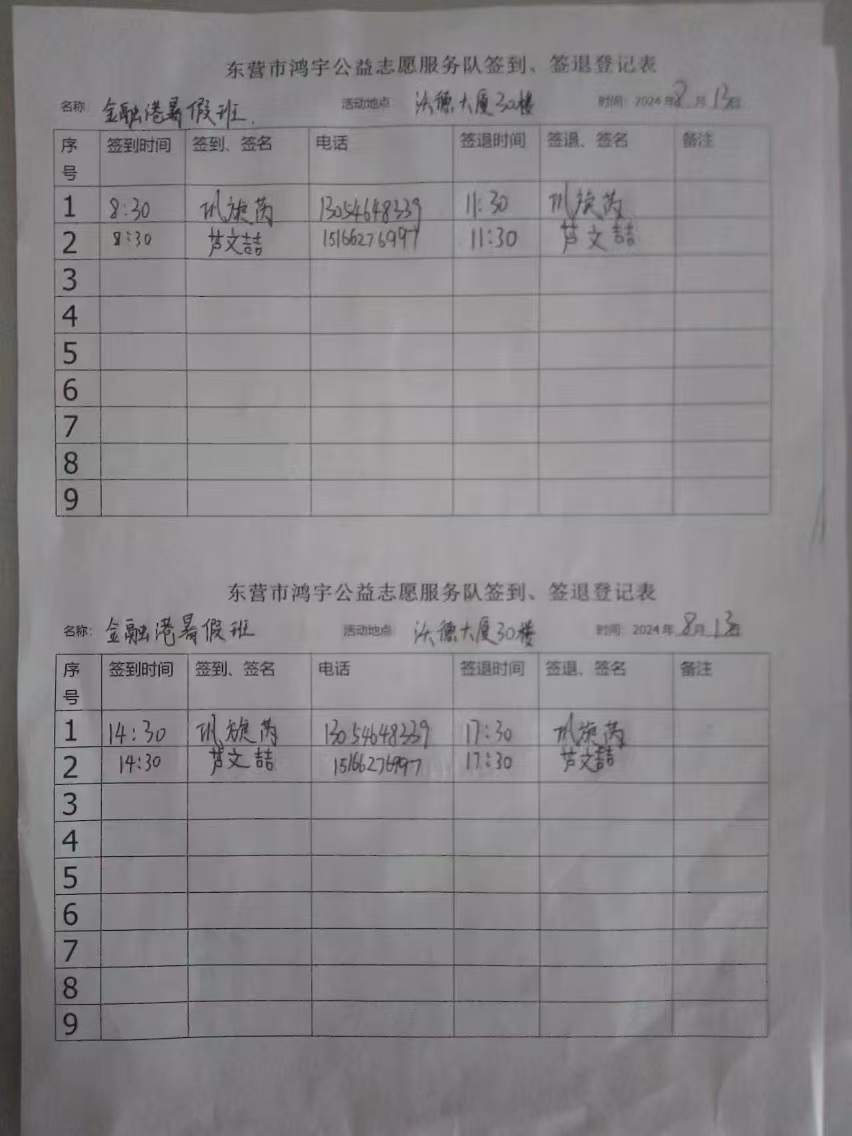 东营市鸿宇公益志愿服务队签到、签退登记表
名称: 金融港暑假班. 活动地点: 沃德大厦30楼 时间: 2024年8月13日
序号 签到时间 签到、签名 电话 签退时间 签退、签名 备注
1 8:30 巩旋芮 13054648339 11:30 巩旋芮
2 8:30 芦文喆 15166276997 11:30 芦文喆
3
4
5
6
7
8
9
东营市鸿宇公益志愿服务队签到、签退登记表
名称: 金融港暑假班 活动地点: 沃德大厦30楼 时间: 2024年8月13日
序号 签到时间 签到、签名 电话 签退时间 签退、签名 备注
1 14:30 巩旋芮 13054648339 17:30 巩旋芮
2 14:30 芦文喆 15166276997 17:30 芦文喆
3
4
5
6
7
8
9